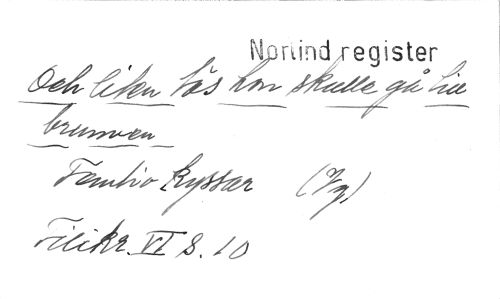 Norlind register
Och liten tös hon skulle gå till
brunnen
Femtio kyssar (Vg)
Filikr. VI S. 10